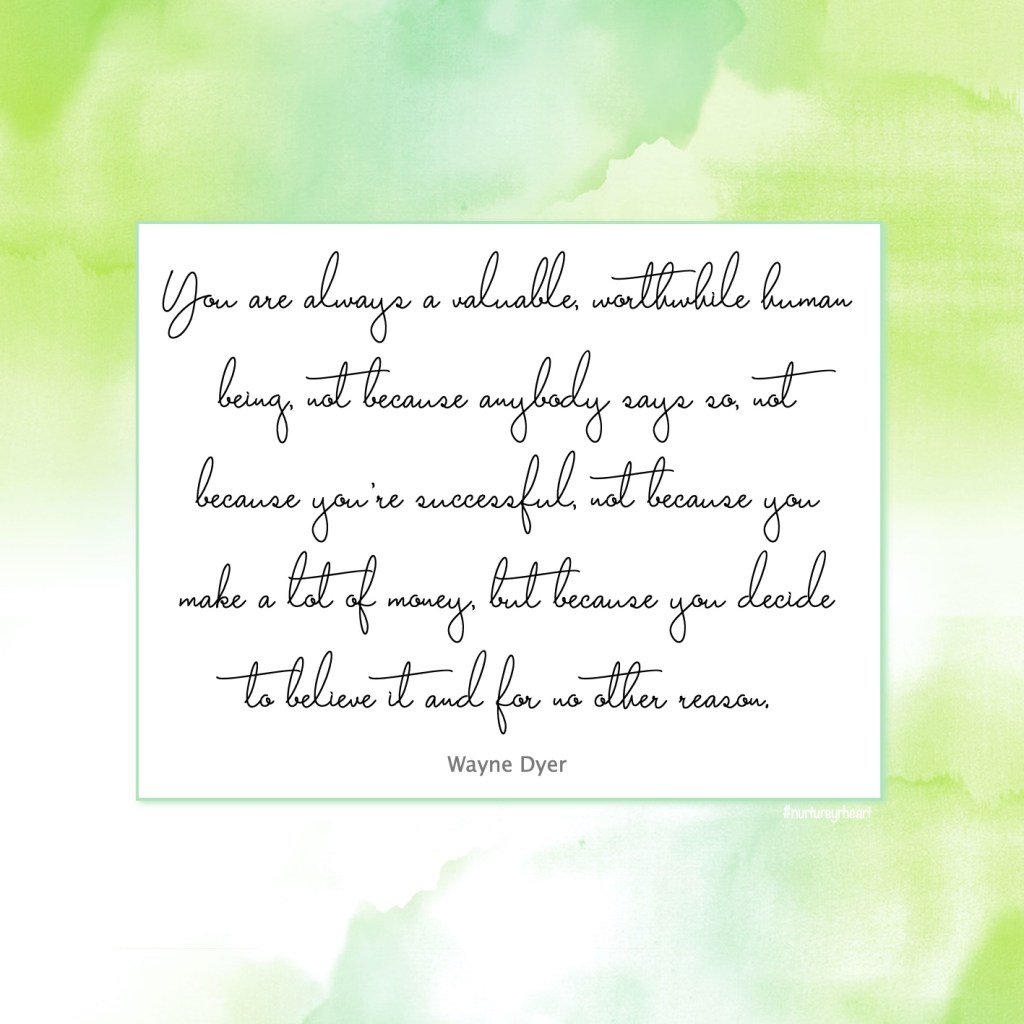 You are always a valuable, worthwhile human
being, not because anybody says so, not
because you're successful, not because you
make a lot of money, but because you decide
to believe it and for no other reason.
Wayne Dyer
#nurtureyrheart